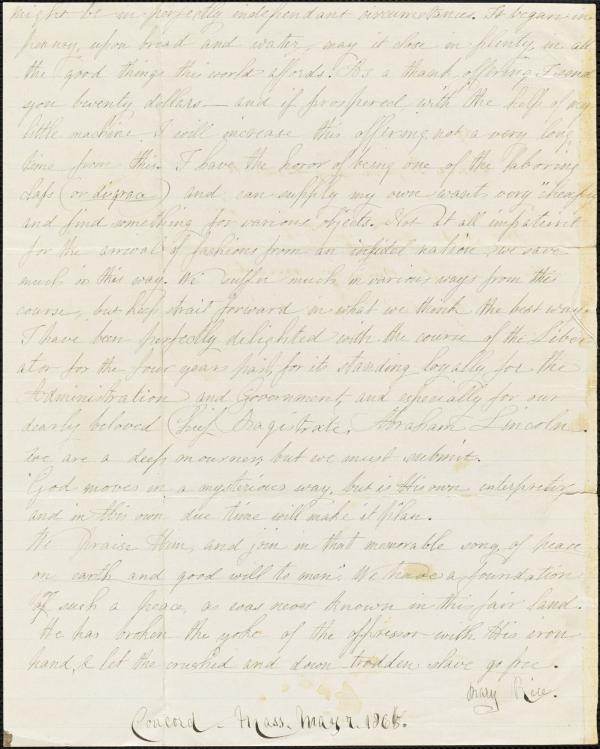 might be in perfectly independant circumstances. It began in
penury, upon bread and water, may it close in plenty, in all
the good things this world affords. As a thank offering, I send
you twenty dollars — and if prospered with the help of my
little machine I will increase this offering not a very long
time from this. I have the honor of being one of the laboring
class (or disgrace) and can supply my own wants very "cheaply"
and find something for various objects. Not at all impatient
for the arrival of fashions from an infidel nation, we save
much in this way. We suffer much in various ways from this
course, but keep strait forward in what we think the best way.
I have been perfectly delighted with the course of the Liber
ator for the four years past, for its standing loyally for the
Administration and Government, and especially for our
dearly beloved Chief Magistrate, Abraham Lincoln.
We are a deep mourners, but we must submit.
"God moves in a mysterious way, but is His own interpreter
and in His own due time will make it plan.
We praise Him, and join in that memorable song, of "peace
on earth and good will to men". We have a foundation
of such a peace, as was never known in this fair land.
He has broken the yoke of the oppressor with His iron
hand, & let the crushed and down trodden slave go free.
Mary Rice.
Concord - Mass. May 7. 1865.